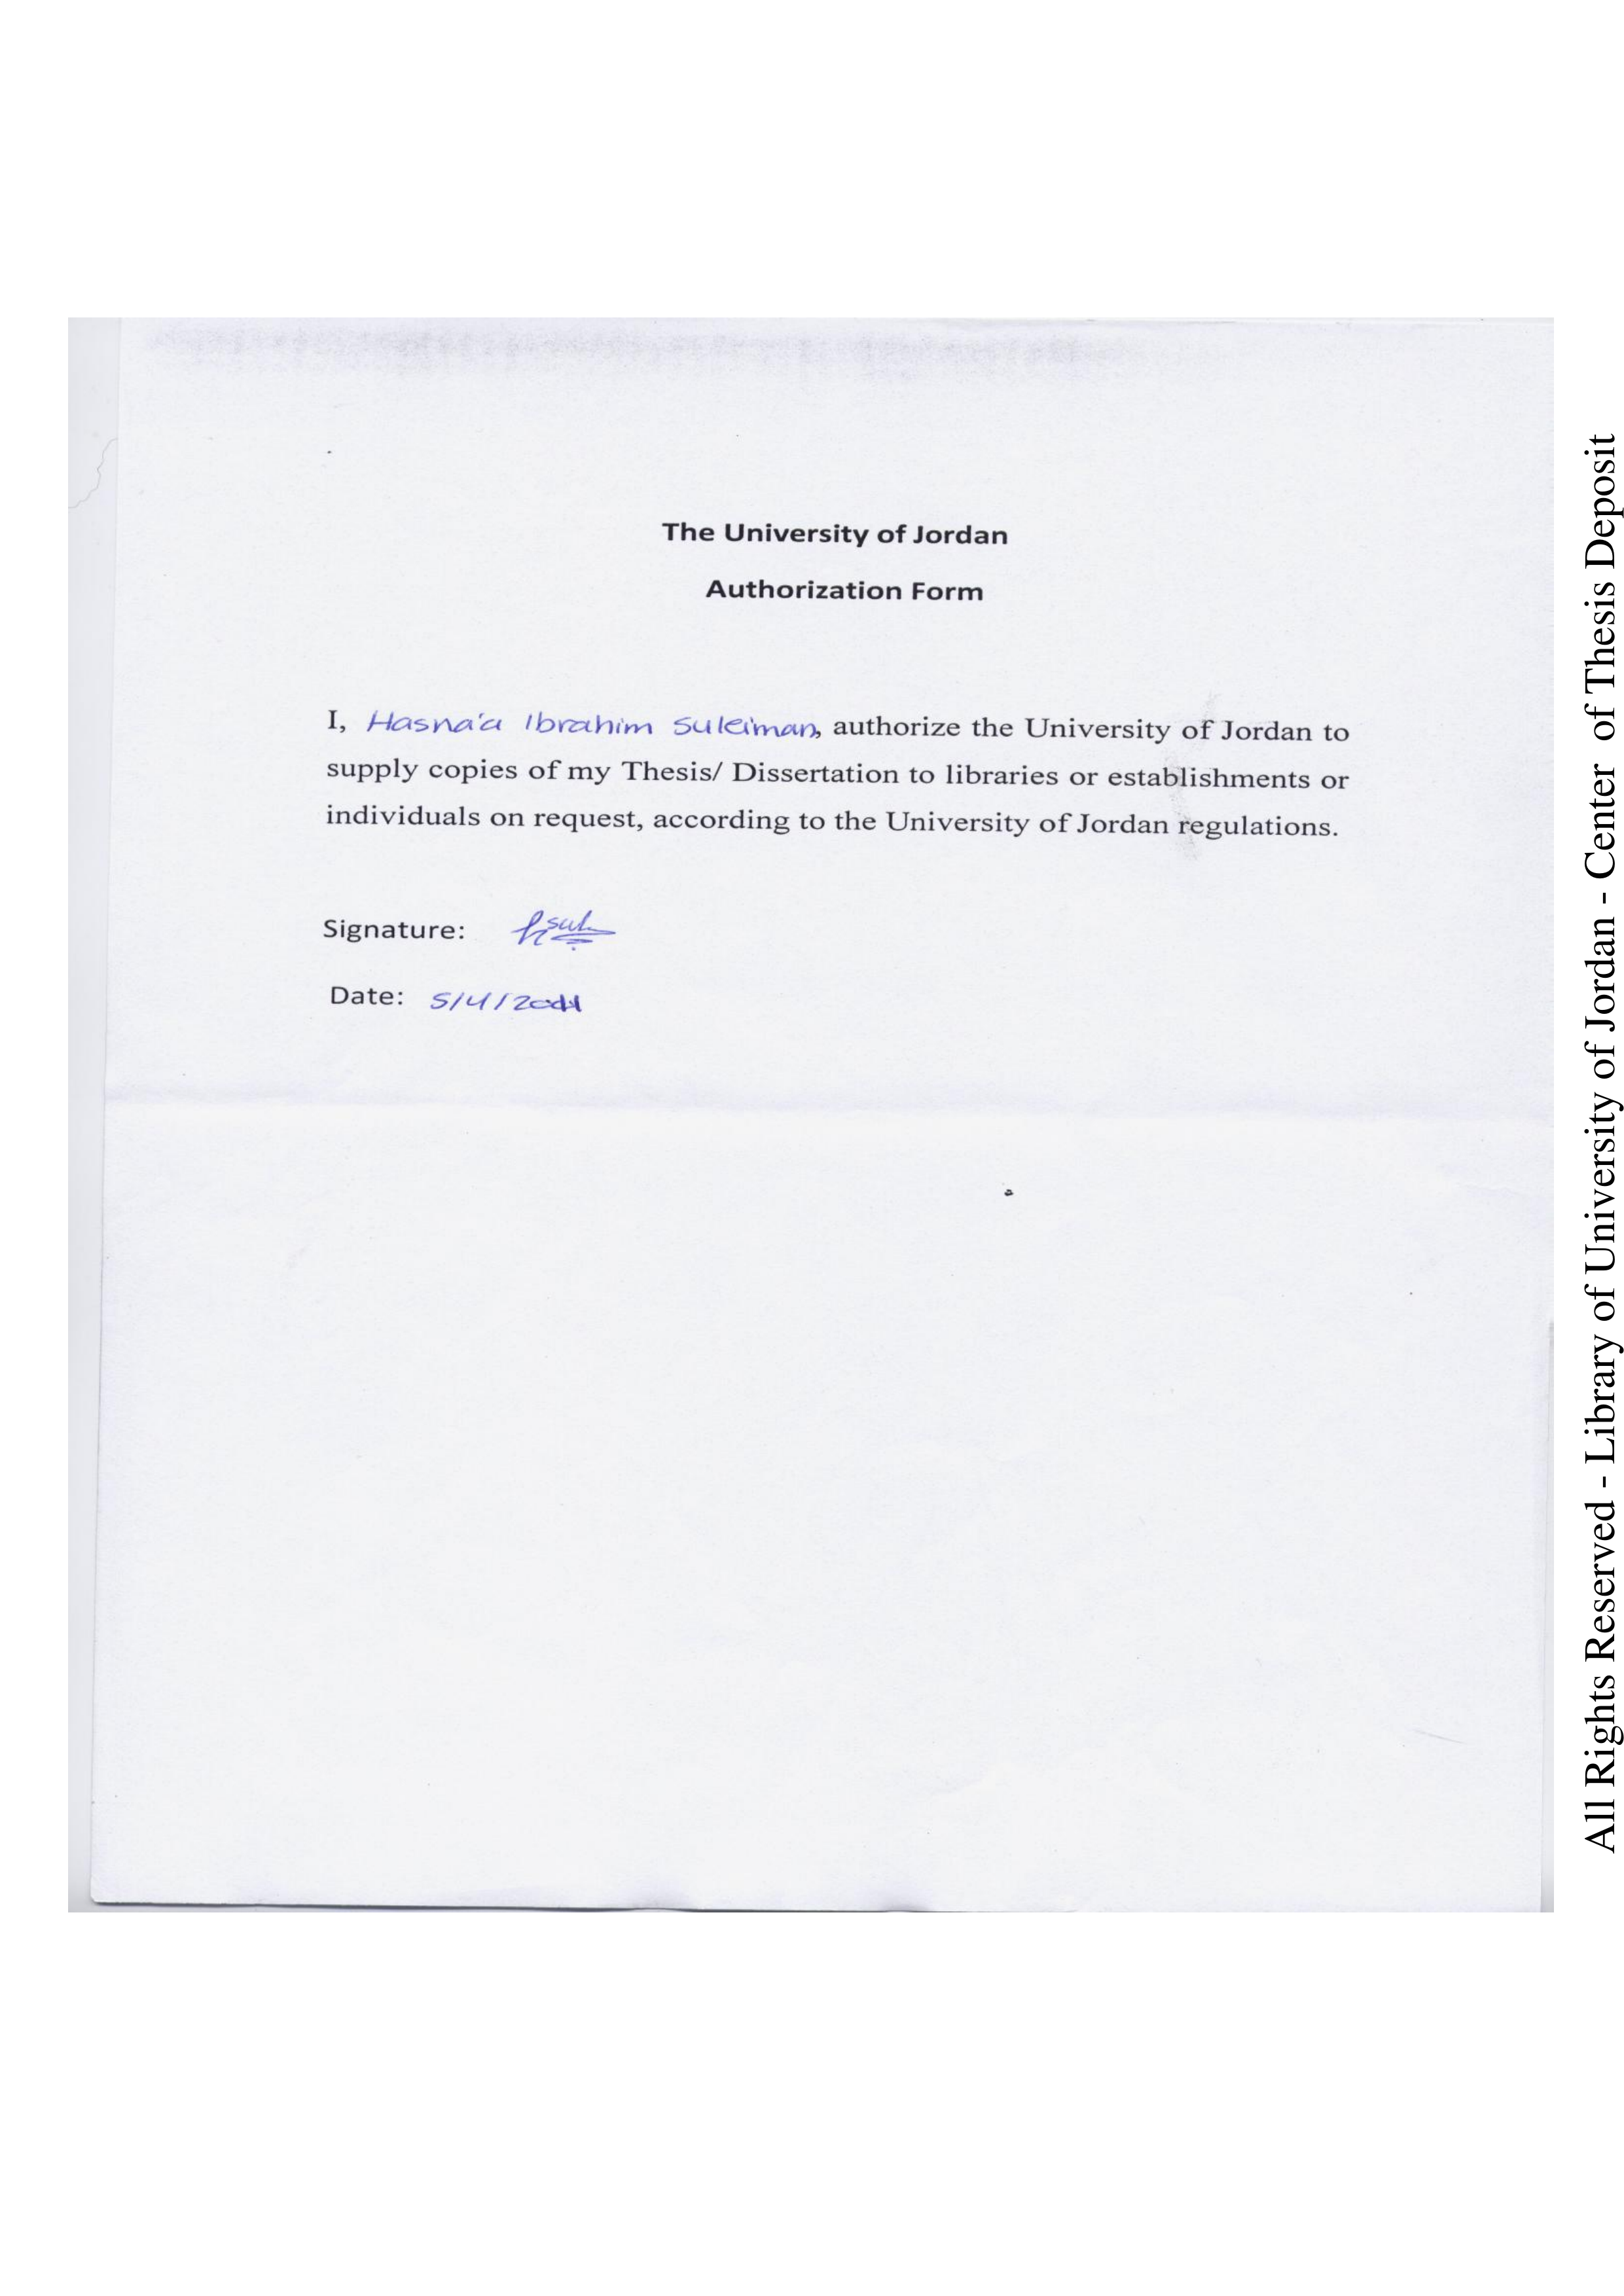 The University of Jordan
Authorization Form
I, Hasna'a Ibrahim Suleiman, authorize the University of Jordan to
supply copies of my Thesis/ Dissertation to libraries or establishments or
individuals on request, according to the University of Jordan regulations.
Signature:
Date: 5/4/
All Rights Reserved - Library of University of Jordan - Center of Thesis Deposit